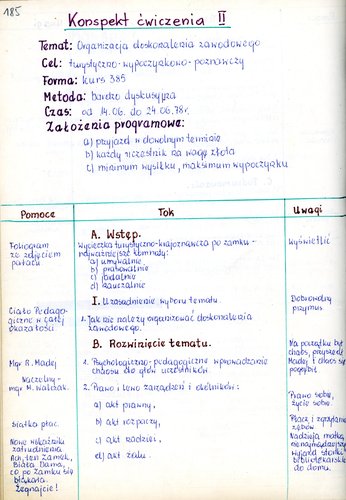 185
Konspekt ćwiczenia II
Temat: Organizacja doskonalenia zawodowego
Cel: turystyczno-wypoczynkowo-poznawczy
Forma: kurs 385
Metoda: bardzo dyskusyjna
Czas: od 14.06. do 24.06.78r.
Założenia programowe:
a) przyjazd w dowolnym terminie
b) każdy uczestnik na wagę złota
c) minimum wysiłku, maksimum wypoczynku
Pomoce
Tok
Uwagi
A. Wstęp.
Fonogram ze zdjęciem pałacu
Wycieczka turystyczno-krajoznawcza po zamku -
najważniejsze komnaty:
a) umywalnie
b) prasowalnie
c) jadalnie
d) nauczalnie
Wyświetlić
I. Uzasadnienie wyboru tematu.
Ciało Pedago-
giczne w całej
okazałości
1. Jak nie należy organizować doskonalenia
zawodowego.
Dobrowolny
przymus
B. Rozwinięcie tematu.
Mgr B. Madej
Naczelny-
mgr M. Walczak.
1. Psychologiczno-pedagogiczne wprowadzanie
chaosu do głów uczestników.
Na początku był
chaos, przyszedł
Madej i chaos się
pogłębił
2. Prawo i lewo zarządzeń i okólników:
a) akt prawny,
Prawo sobie,
życie sobie.
Siatka płac
b) akt rozpaczy,
Płacz i zgrzytanie
zębów
Nowe wskaźniki
zatrudnienia
c) akt nadziei,
Nadzieja matką
Ach, ten zamek,
Biała Dama,
co po zamku się
błąkała.
Żegnajcie!
d) akt żalu.
Wyjazd
bibliotekarskiej
do domu.